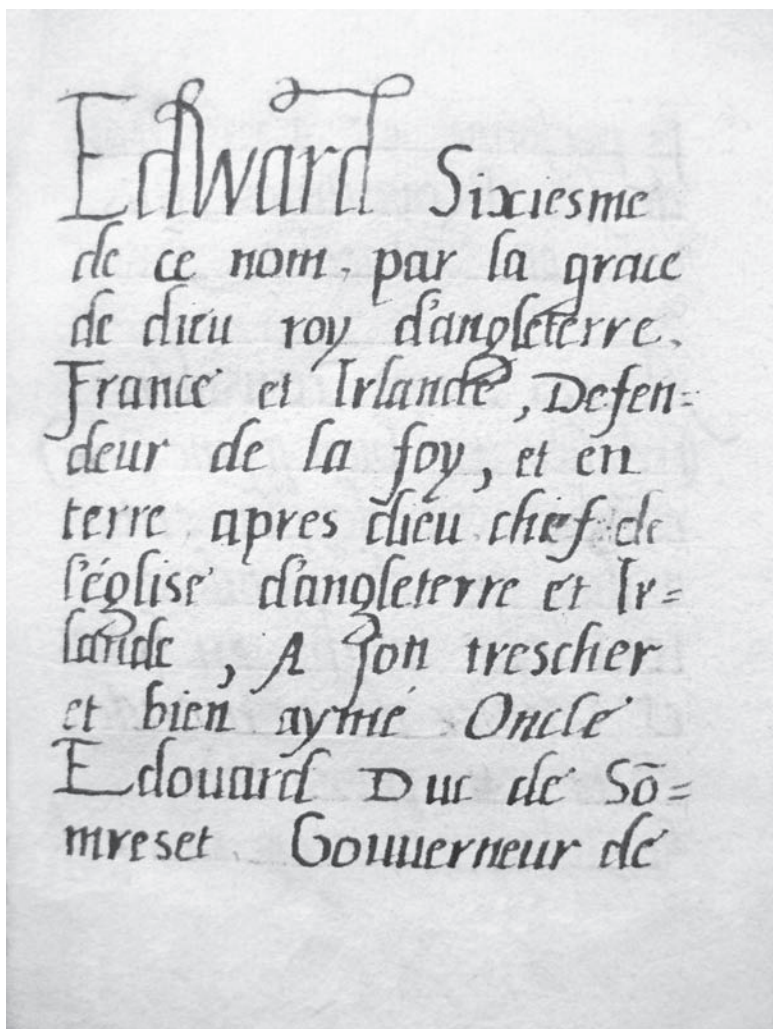 Edward Sixiesme
de ce nom, par la grace
de dieu roy d'angleterre.
France et Irlande, Defen=
deur de la foy, et en
terre apres dieu chef de
l'église d'angleterre et Ir=
lande, A son trescher
et bien aymé Oncle
Edouard Duc de Sō=
mreset. Gouuerneur de